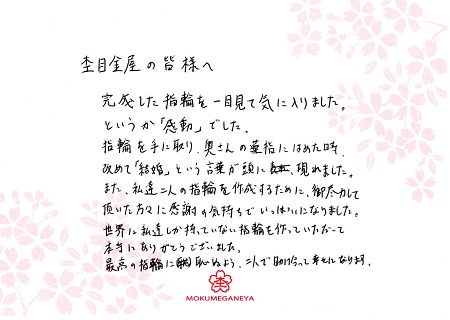 杢目金屋の皆様へ
完成した指輪を一目見て気に入りました。
というか「感動」でした。
指輪を手に取り、奥さんの薬指にはめた時、
改めて「結婚」という言葉が頭に現れました。
また、私達二人の指輪を作成するために、御尽力して
頂いた方々に感謝の気持ちでいっぱいになりました。
世界に私達しか持っていない指輪を作っていただいて
本当にありがとうございました。
最高の指輪に恥ぬよう、二人で助け合って幸せになります。
MOKUMEGANEYA